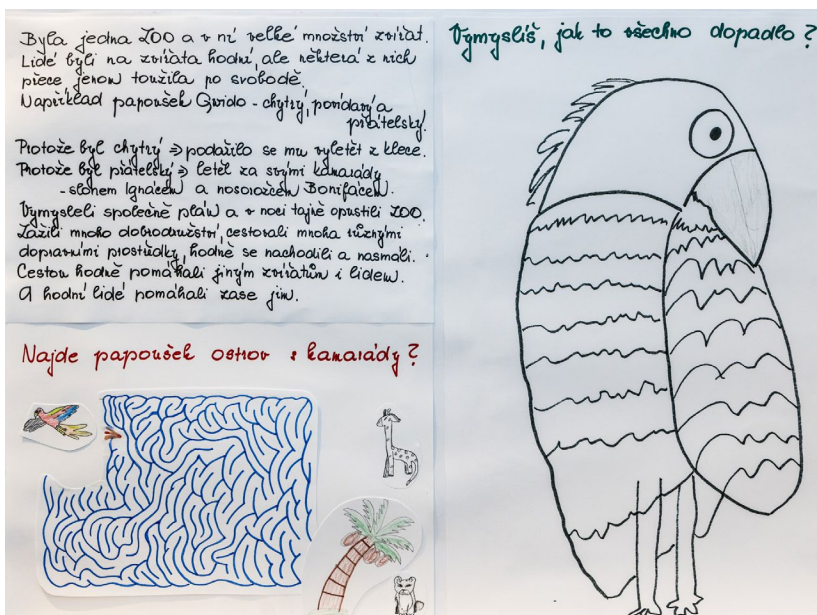 Byla jedna ZOO a v ní velké množství zvířat.
Lidé byli na zvířata hodní, ale některá z nich
přece jenom toužila po svobodě.
Například papoušek Gwido - chytrý, povídavý a
přátelský.
Protože byl chytrý ⇒ podařilo se mu vyletět z klece.
Protože byl přátelský ⇒ letěl za svými kamarády
- slonem Ignácem a nosorožcem Bonifácem.
Vymysleli společně plán a v noci tajně opustili ZOO.
Zažili mnoho dobrodružství, cestovali mnoha různými
dopravními prostředky, hodně se nachodili a nasmáli.
Cestou hodně pomáhali jiným zvířatům i lidem.
A hodní lidé pomáhali zase jim.
Najde papoušek ostrov s kamarády?
Vymyslíš, jak to všechno dopadlo?